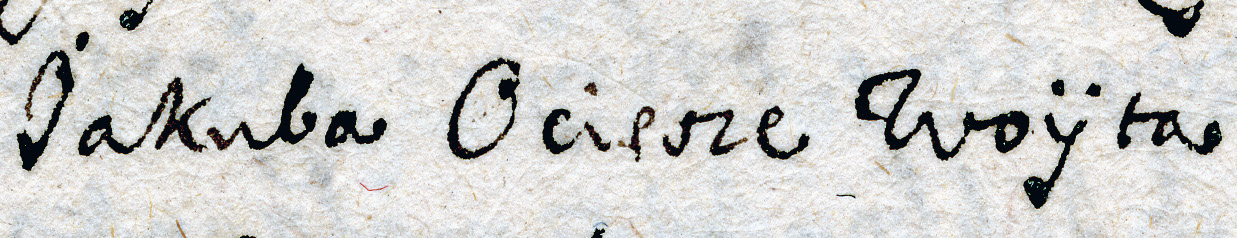 Jakuba Ociesze Woÿta